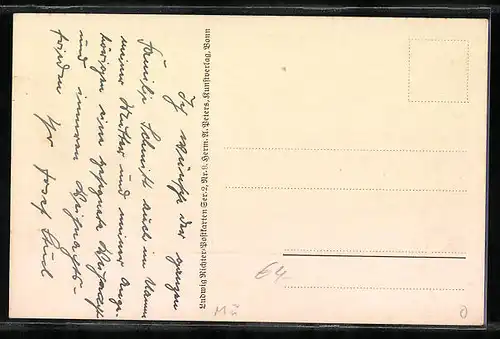 Ich wünsche der ganzen
Familie Schmitt auch im Namen
meiner Mutter und meiner Ange-
hörigen eine gesegnete Weihnacht
und inneren Weihnachts-
frieden Ihr Josef
Ludwig Richter-Postkarten Ser. 2, Nr. 11. Herm. A. Peters, Kunstverlag, Bonn
64
Mü